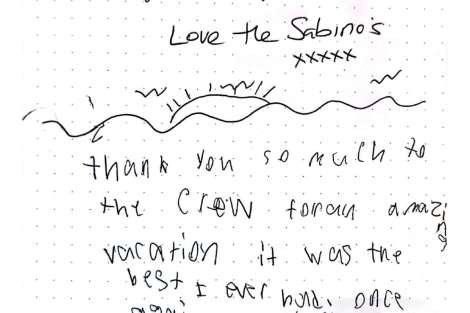 Love the Sabino's
xxxxx
thank you so much to
the Crew for an amazing
vacation it was the
best I ever had. once